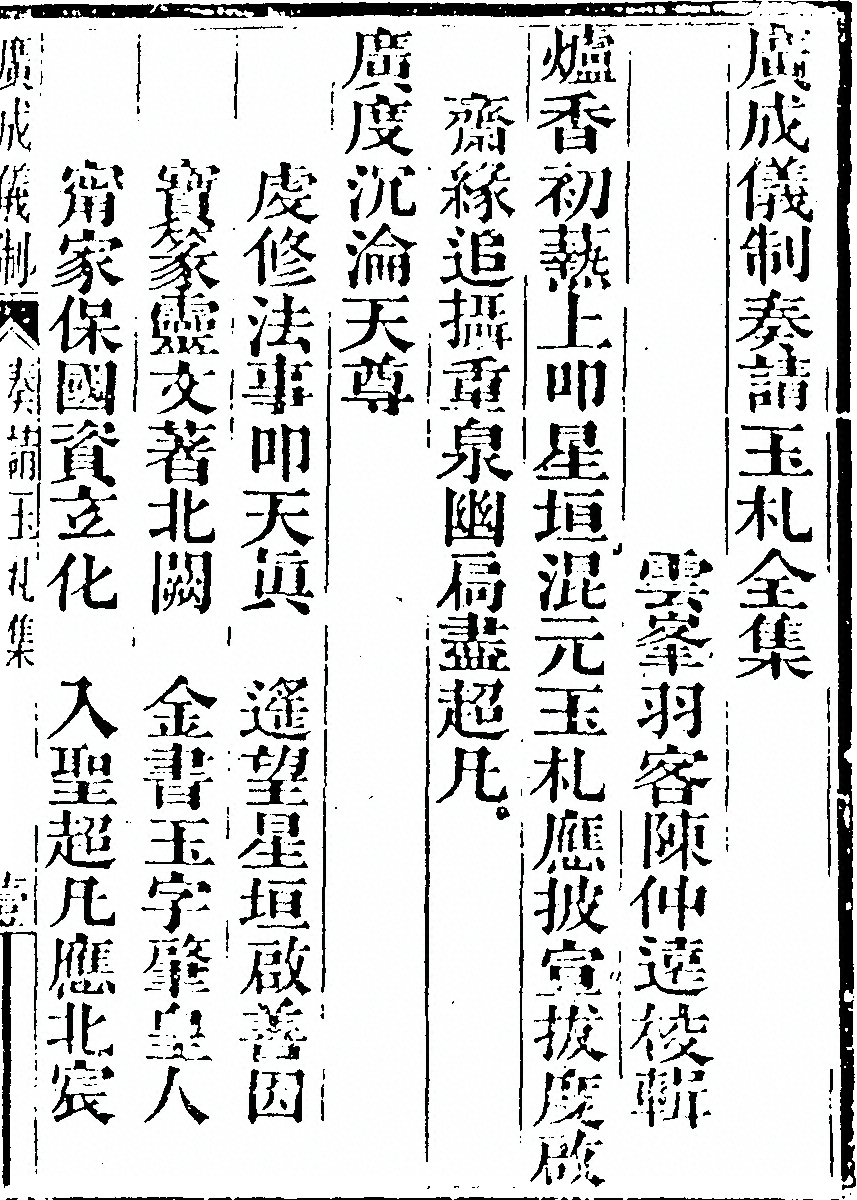 廣成儀制奏請玉札全集
雲峯羽客陳仲遠校輯
爐香初爇上叩星垣混元玉札應披宣拔度啟
齋緣追攝重泉幽扃盡超凡。
廣度沉淪天尊
虔修法事叩天眞　遙望星垣啟善因
寶篆靈文著北闕　金書玉字肇皇人
甯家保國資立化　入聖超凡應北宸
廣成儀制　奏請玉札集　壹